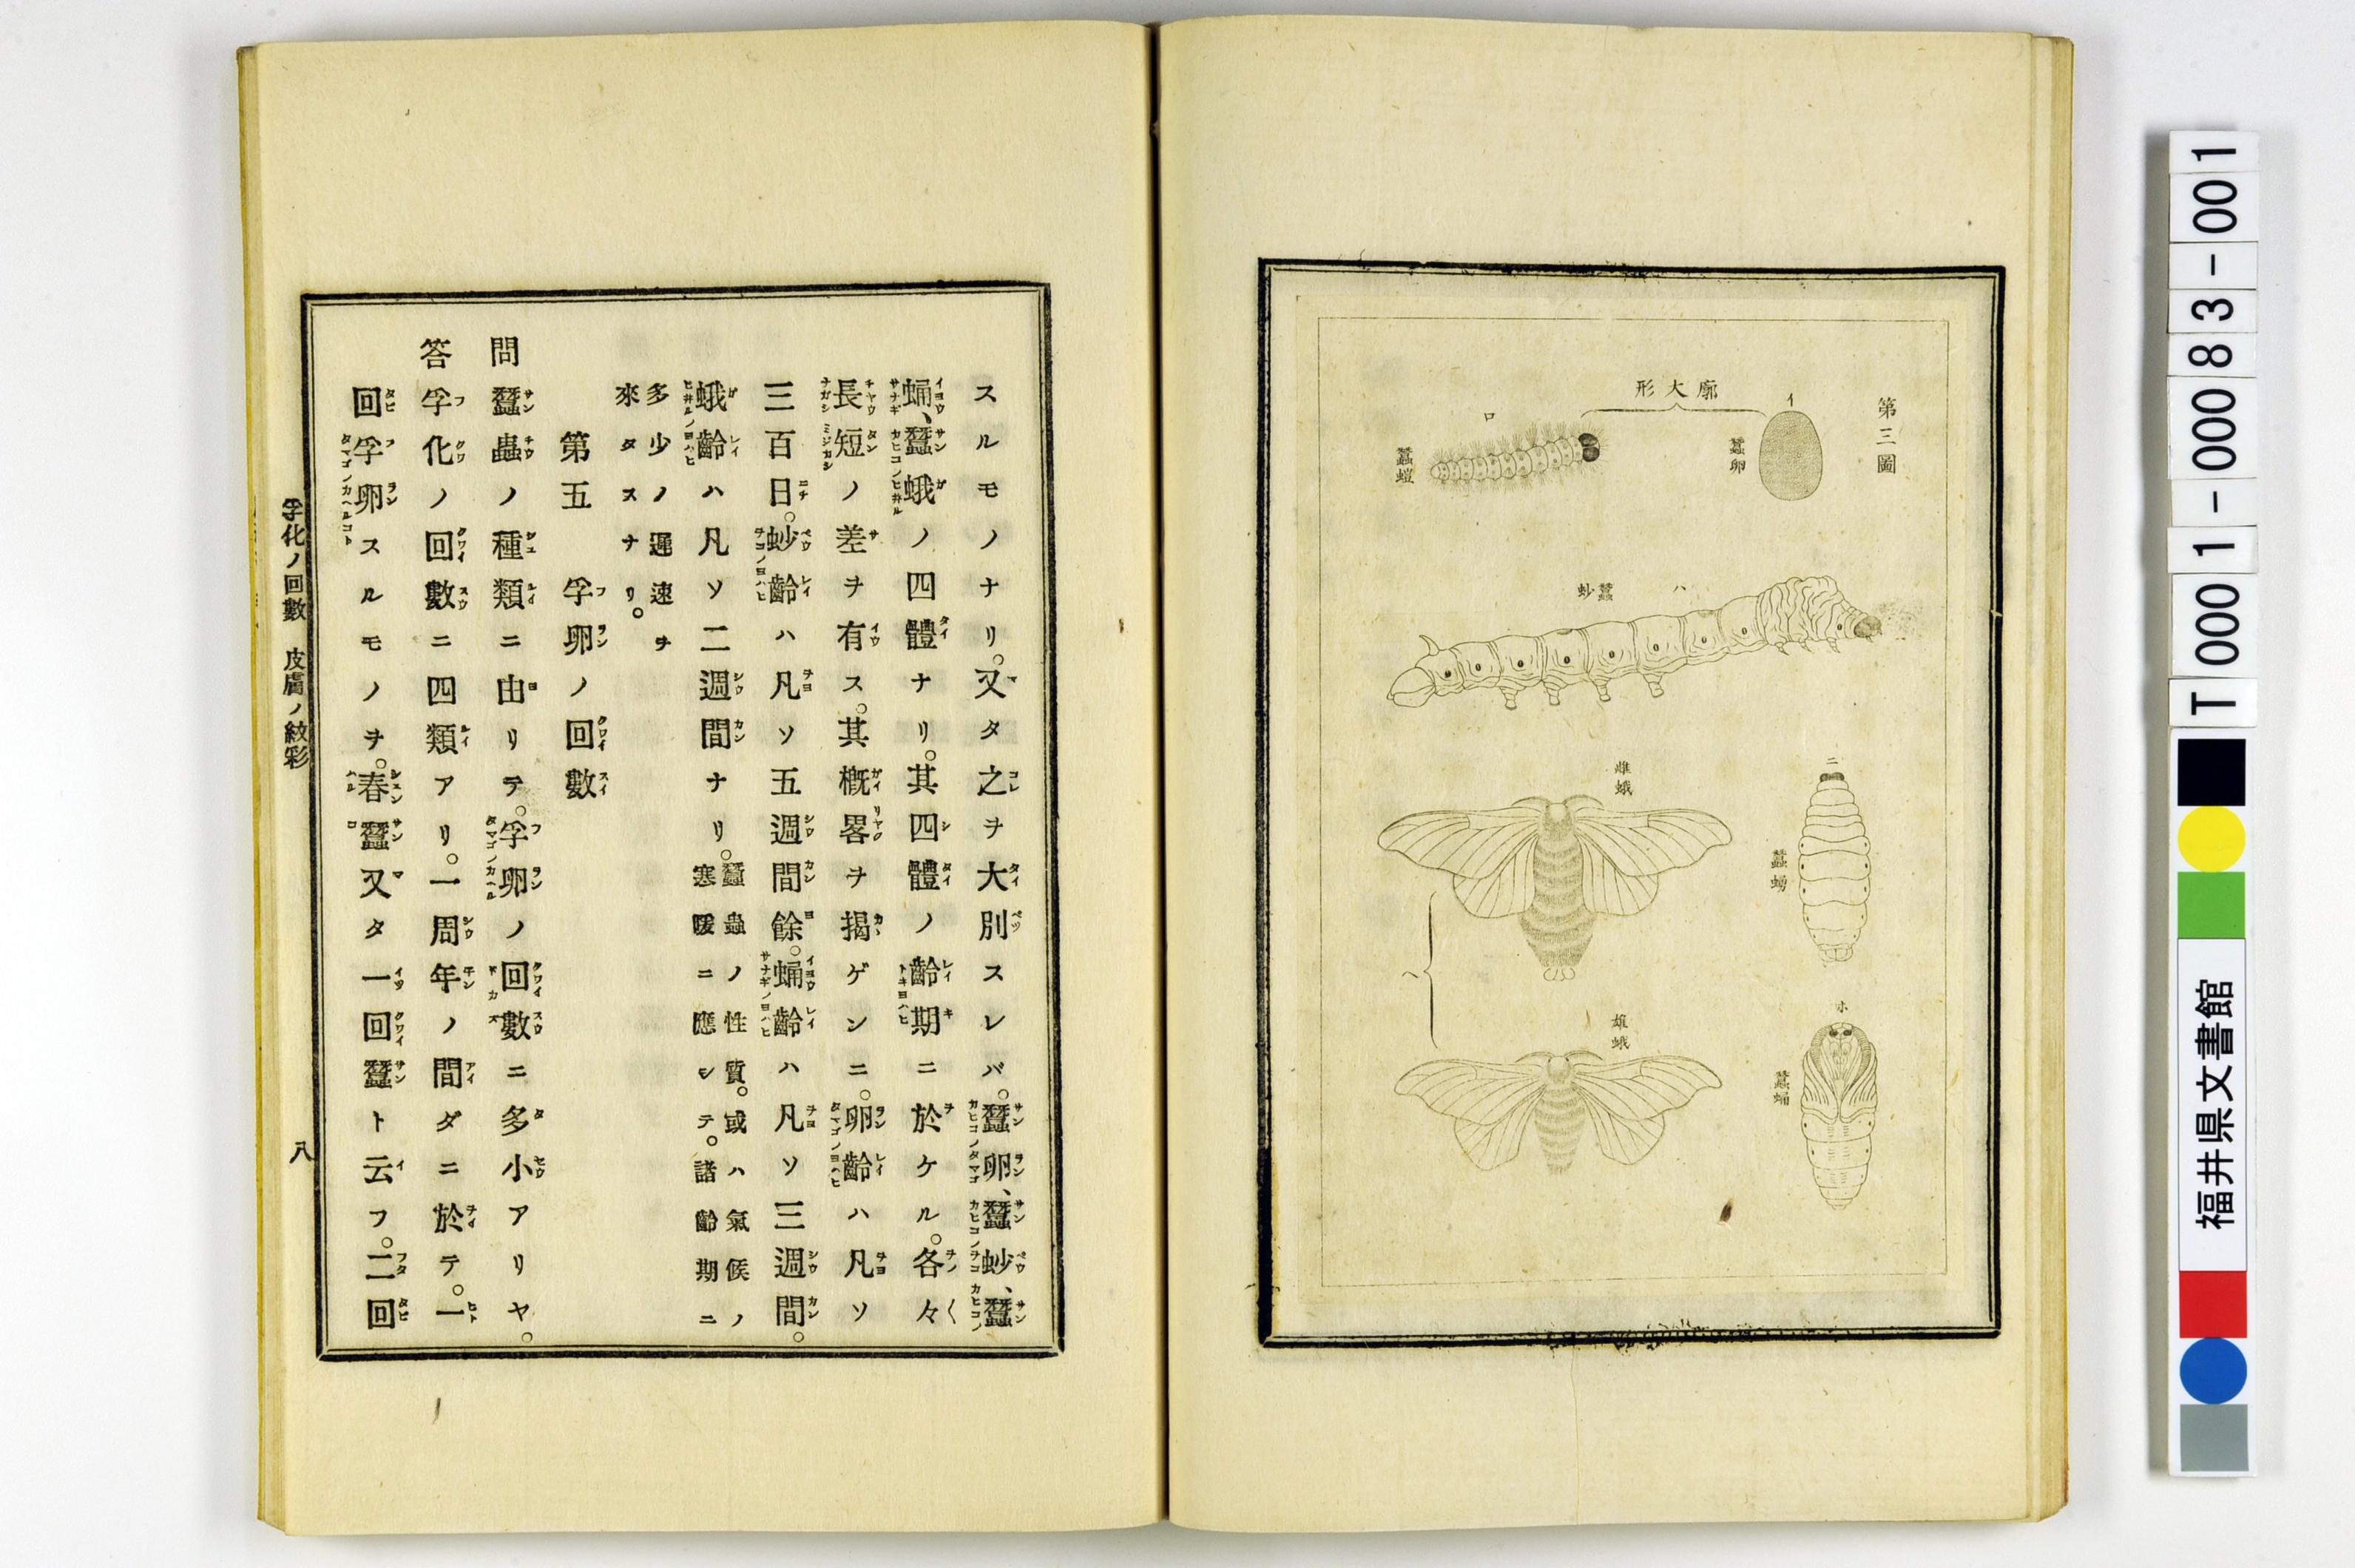 第三圖
廓大形
イ
蠶卵
ロ
蠶螘
ハ
蠶𧉻
ニ
蠶蛹
ホ
蠶蛹
ヘ
雌蛾
雄蛾
スルモノナリ。又タ之ヲ大別スレバ。蠶卵、蠶𧉻、蠶
蛹、蠶蛾ノ四體ナリ。其四體ノ齡期ニ於ケル。各々
長短ノ差ヲ有ス。其概畧ヲ揭ゲンニ。卵齡ハ凡ソ
三百日。𧉻齡ハ凡ソ五週間餘。蛹齡ハ凡ソ三週間。
蛾齡ハ凡ソ二週間ナリ。蠶蟲ノ性質。或ハ氣候ノ
寒暖ニ應シテ。諸齡期ニ
多少ノ遲速ヲ
來タスナリ。
第五 孚卵ノ回數
問 蠶蟲ノ種類ニ由リテ。孚卵ノ回數ニ多小アリヤ。
答 孚化ノ回數ニ四類アリ。一周年ノ間ダニ於テ。一
回孚卵スルモノヲ。春蠶又タ一回蠶ト云フ。二回
孚化ノ回數 皮膚ノ紋彩
八
T0001-00083-001
福井県文書館